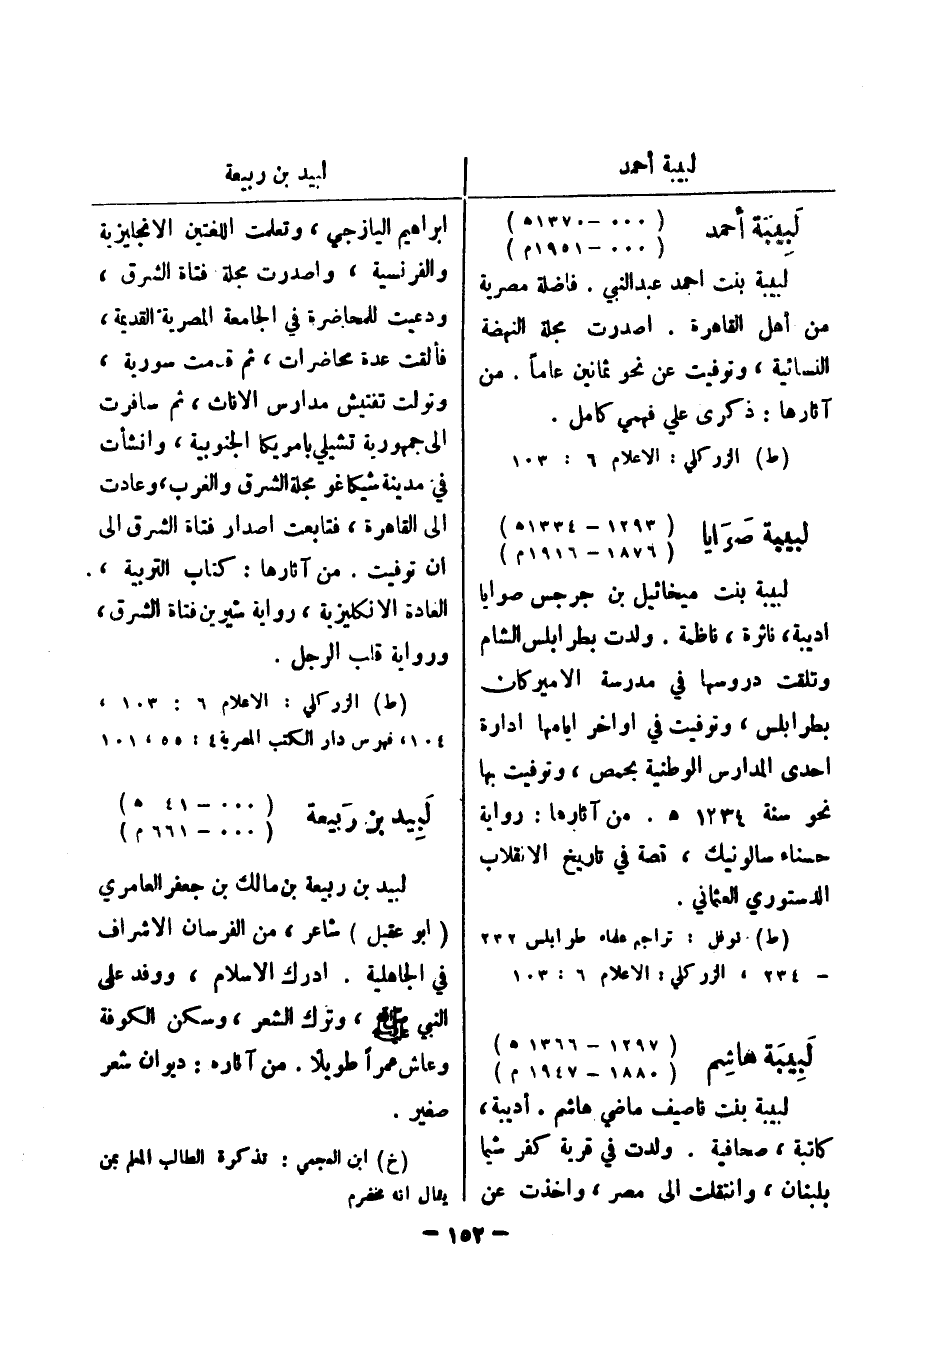 لبيبة أحمد
لبيد بن ربيعة
لَبِيبَة أحمد
( ٠٠٠ – ١٣٧٠ ه )
( ٠٠٠ – ١٩٥١ م )
لبيبة بنت احمد عبدالنبي . فاضلة مصرية
من أهل القاهرة . اصدرت مجلة النهضة
النسائية ، وتوفيت عن نحو ثمانين عاماً . من
آثارها : ذكرى علي فهمي كامل .
(ط) الزركلي : الاعلام ٦ : ١٠٣
لبيبة صَوَايا
( ١٢٩٣ – ١٣٣٤ ه )
( ١٨٧٦ – ١٩١٦ م )
لبيبة بنت ميخائيل بن جرجس صوايا
اديبة، ناثرة ، ناظمة . ولدت بطرابلس الشام
وتلقت دروسها في مدرسة الاميركان
بطرابلس ، وتوفيت في اواخر ايامها ادارة
احدى المدارس الوطنية بحمص ، وتوفيت بها
نحو سنة ١٢٣٤ ه . من آثارها : رواية
حسناء سالونيك ، قصة في تاريخ الانقلاب
الدستوري العثماني .
(ط) نوفل : تراجم علماء طرابلس ٢٣٢
– ٢٣٤ ، الزركلي : الاعلام ٦ : ١٠٣
لَبِيبَة هاشم
( ١٢٩٧ – ١٣٦٦ ه )
( ١٨٨٠ – ١٩٤٧ م )
لبيبة بنت ناصيف ماضي هاشم . أديبة ،
كاتبة ، صحافية . ولدت في قرية كفر شيما
بلبنان ، وانتقلت الى مصر ، واخذت عن
ابراهيم اليازجي ، وتعلمت اللغتين الانجليزية
والفرنسية ، واصدرت مجلة فتاة الشرق ،
ودعيت للمحاضرة في الجامعة المصرية القديمة ،
فألقت عدة محاضرات ، ثم قدمت سورية ،
وتولت تفتيش مدارس الاناث ، ثم سافرت
الى جمهورية تشيلي بامريكا الجنوبية ، وانشأت
في مدينة شيكاغو مجلة الشرق والغرب ، وعادت
الى القاهرة ، فتابعت اصدار فتاة الشرق الى
أن توفيت . من آثارها : كتاب التربية ، .
الغادة الانكليزية ، رواية شيرين فتاة الشرق ،
ورواية قلب الرجل .
(ط) الزركلي : الاعلام ٦ : ١٠٣ ،
١٠٤ ، فهرس دار الكتب المصرية ٤ : ٥٥ ، ١٠١
لَبِيد بن رَبيعة
( ٠٠٠ – ٤١ ه )
( ٠٠٠ – ٦٦١ م )
لبيد بن ربيعة بن مالك بن جعفر العامري
( ابو عقيل ) شاعر ، من الفرسان الاشراف
في الجاهلية . ادرك الاسلام ، ووفد على
النبي ﷺ ، وترك الشعر ، وسكن الكوفة
وعاش عمراً طويلا . من آثاره : ديوان شعر
صغير .
(خ) ابن العجمي : تذكرة الطالب المعلم بمن
يقال انه مخضرم
– ١٥٢ –